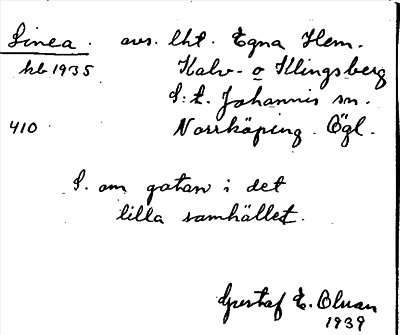 Linea. avs. lht. Egna Hem.
kb 1935 Kalv- o Klingsberg
S:t. Johannis sn.
410 Norrköping. Ögl.
S. om gatan i det
lilla samhället.
Gustaf E. Olson
1939